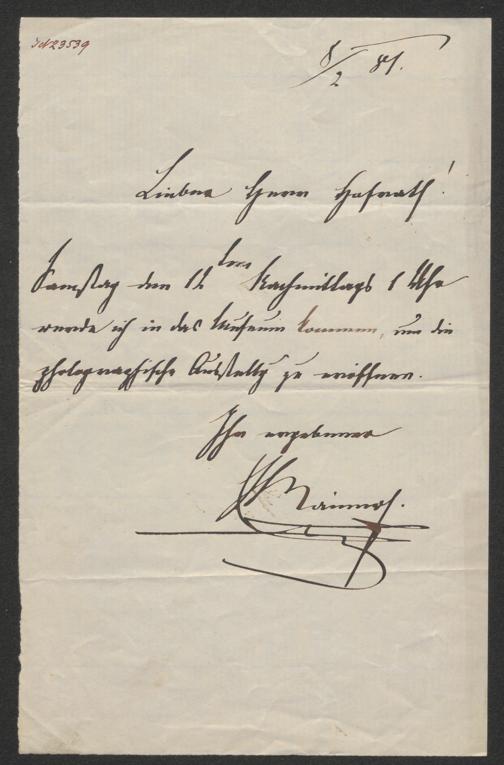 IN 23539
8/2 81.
Lieber Herr Hofrath!
Samstag den 12ten Nachmittags 1 Uhr
werde ich in das Museum kommen, um die
photographische Ausstellg zu eröffnen.
Ihr ergebener
Rainer